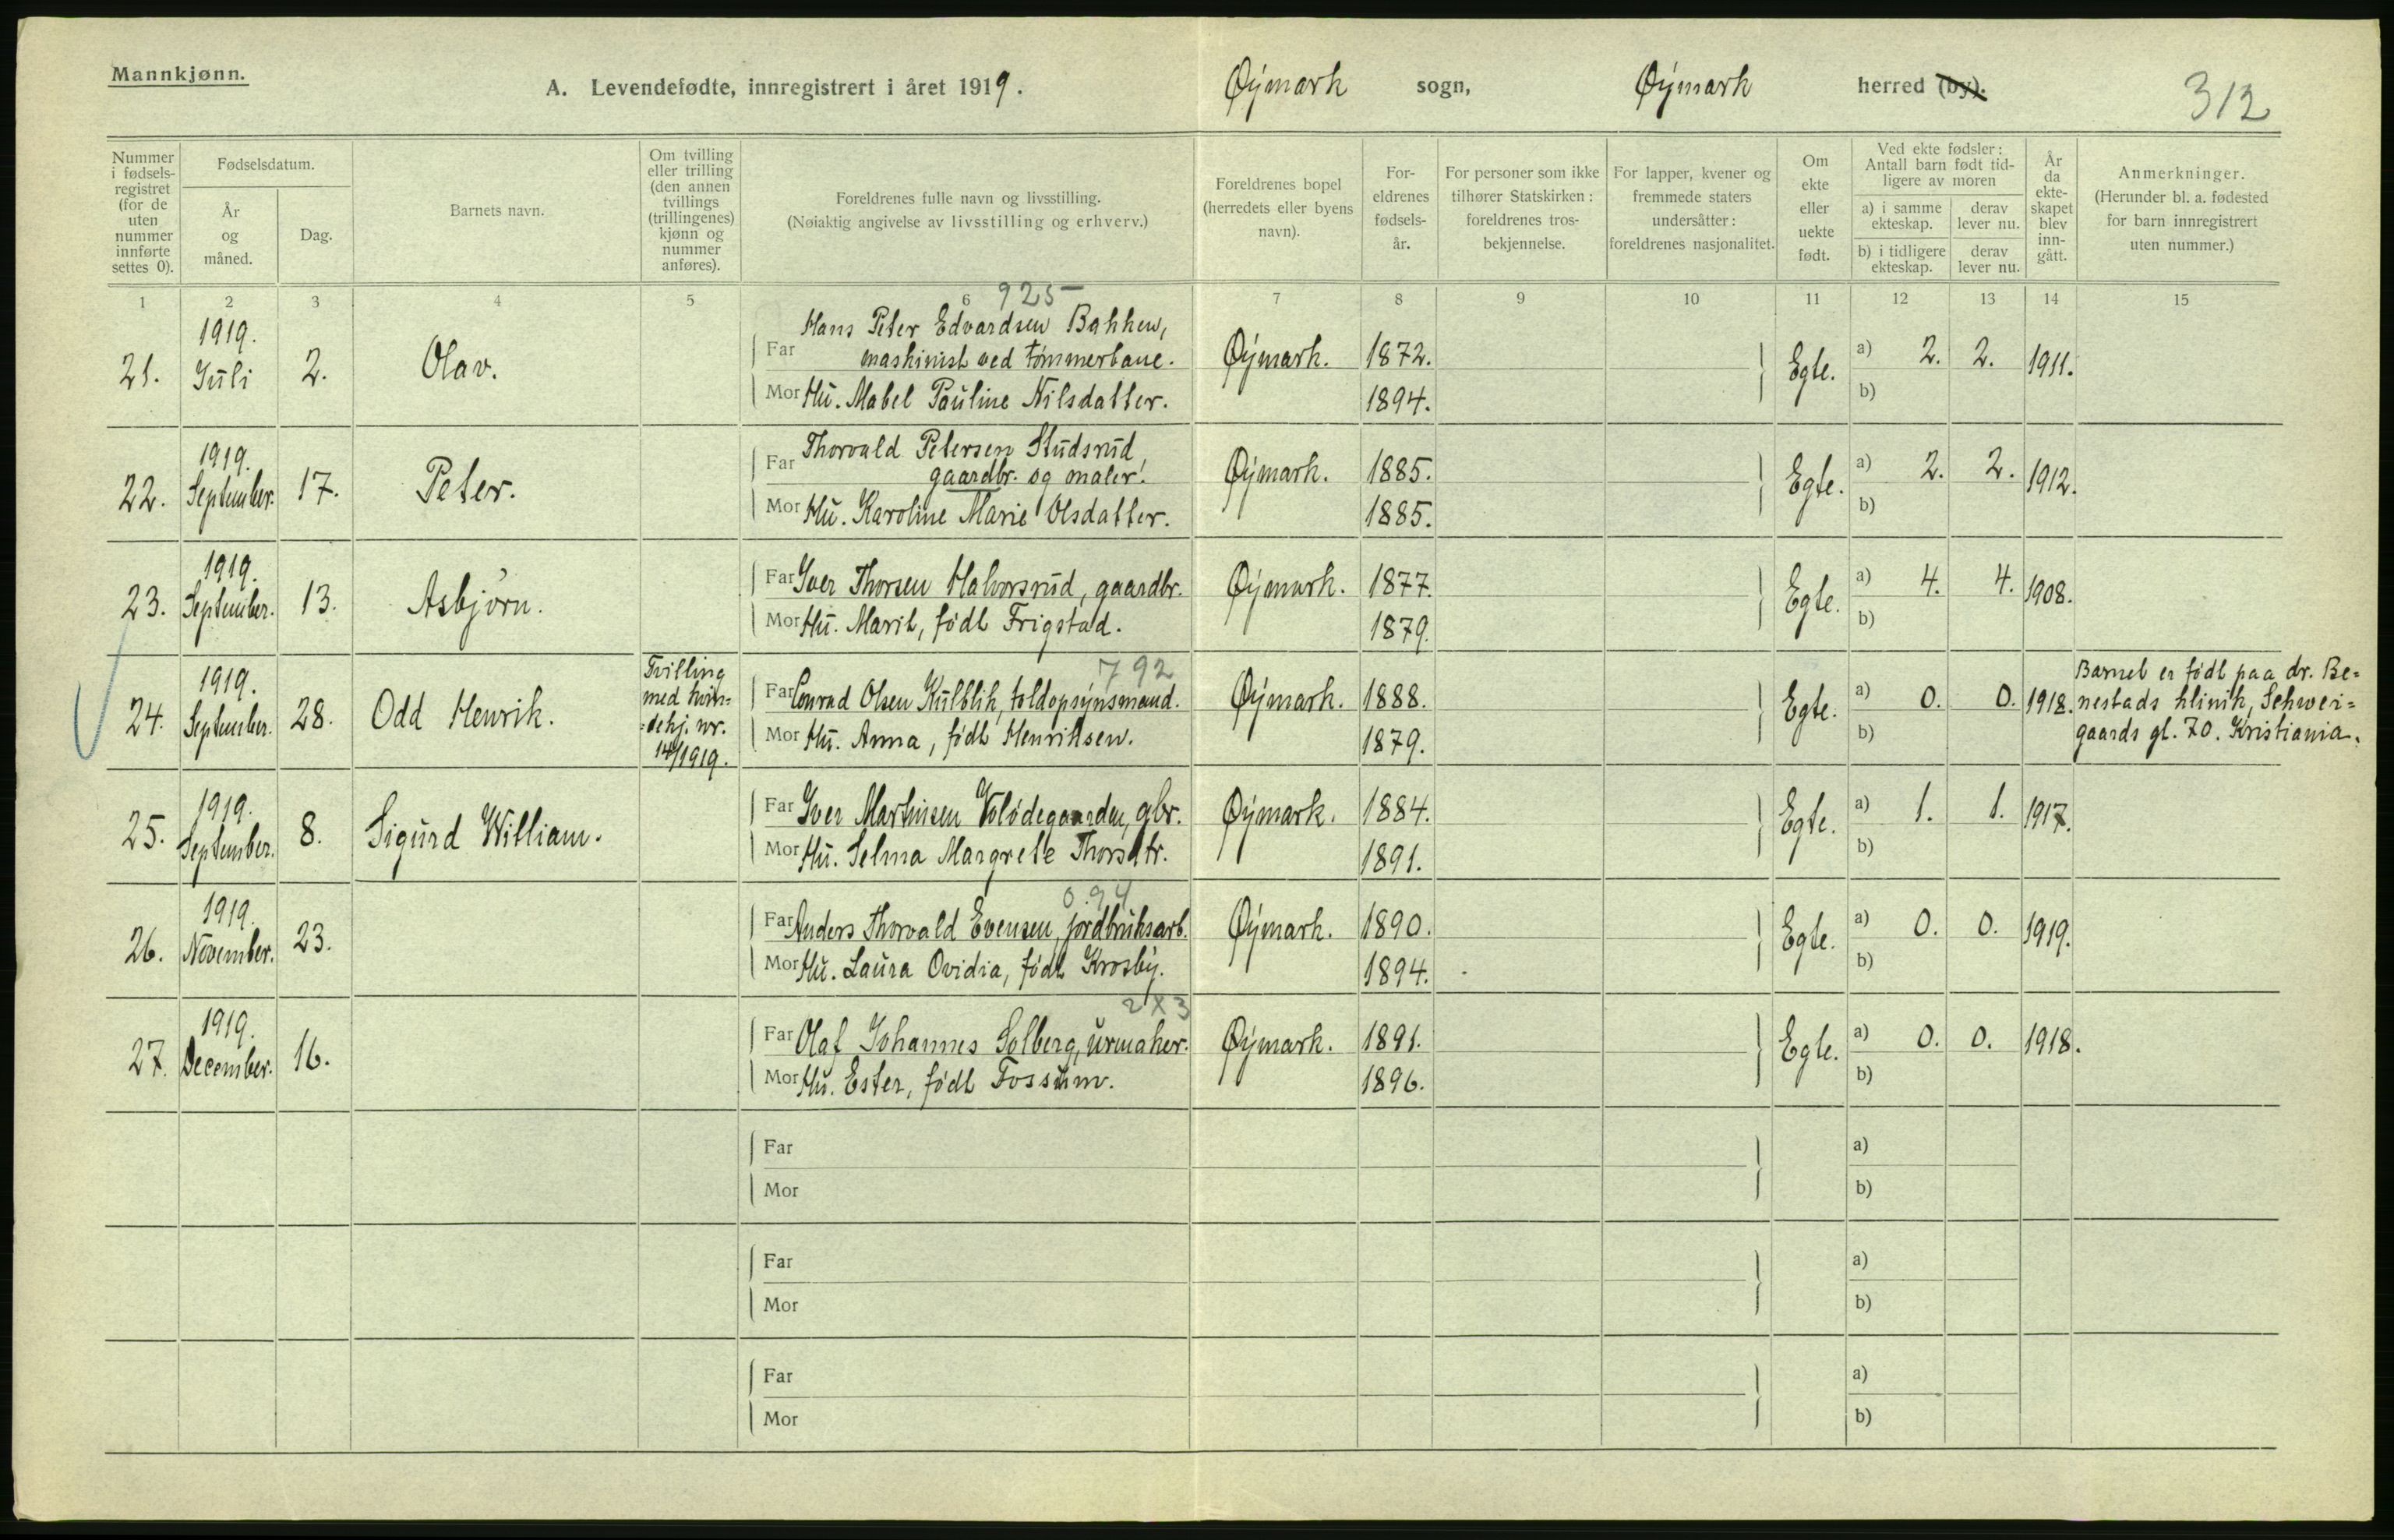 Mannkjønn.
A. Levendefødte, innregistrert i året 1919.
Øymark sogn, Øymark herred (by).
312
Nummer i fødsels-registret (for de uten nummer innførte settes 0).
Fødselsdatum.
År og måned.
Dag.
Barnets navn.
Om tvilling eller trilling (den annen tvillings (trillingenes) kjønn og nummer anføres).
Foreldrenes fulle navn og livsstilling.
(Nøiaktig angivelse av livsstilling og erhverv.)
Foreldrenes bopel (herredets eller byens navn).
For-eldrenes fødsels-år.
For personer som ikke tilhører Statskirken: foreldrenes tros-bekjennelse.
For lapper, kvener og fremmede staters undersåtter: foreldrenes nasjonalitet.
Om ekte eller uekte født.
Ved ekte fødsler: Antall barn født tid-ligere av moren
a) i samme ekteskap.
derav lever nu.
b) i tidligere ekteskap.
derav lever nu.
År da ekte-skapet blev inn-gått.
Anmerkninger.
(Herunder bl. a. fødested for barn innregistrert uten nummer.)
1 2 3 4 5 6 7 8 9 10 11 12 13 14 15
925
21. 1919. Juli 2. Olav.
Far Hans Peter Edvardsen Bakken,
maskinist ved tømmerbane. Øymark. 1872. Egte. a) 2. 2. 1911.
Mor Hu. Mabel Pauline Nilsdatter. 1894. b)
22. 1919. September. 17. Peter.
Far Thorvald Petersen Studsrud,
gaardbr. og maler. Øymark. 1885. Egte. a) 2. 2. 1912.
Mor Hu. Karoline Marie Olsdatter. 1885. b)
23. 1919. September. 13. Asbjørn.
Far Iver Thorsen Halvorsrud, gaardbr. Øymark. 1877. Egte. a) 4. 4. 1908.
Mor Hu. Marit, født Frigstad. 1879. b)
792
24. 1919. September. 28. Odd Henrik.
Tvilling
med kvin=
=dekj. nr.
14/1919.
Far Conrad Olsen Kulblik, toldopsynsmand. Øymark. 1888. Egte. a) 0. 0. 1918.
Mor Hu. Anna, født Henriksen. 1879. b)
Barnet er født paa dr. Be=
nestads klinik, Schwei=
gaards gt. 70. Kristiania.
25. 1919. September. 8. Sigurd William.
Far Iver Martinsen Volødegaarden, gbr. Øymark. 1884. Egte. a) 1. 1. 1917.
Mor Hu. Selma Margrete Thorsdtr. 1891. b)
0.94
26. 1919. November. 23.
Far Anders Thorvald Evensen, jordbruksarb. Øymark. 1890. Egte. a) 0. 0. 1919.
Mor Hu. Laura Ovidia, født Krosby. 1894. b)
2x3
27. 1919. December. 16.
Far Olaf Johannes Solberg, urmaker. Øymark. 1891. Egte. a) 0. 0. 1918.
Mor Hu. Ester, født Fossum. 1896. b)
Far a)
Mor b)
Far a)
Mor b)
Far a)
Mor b)